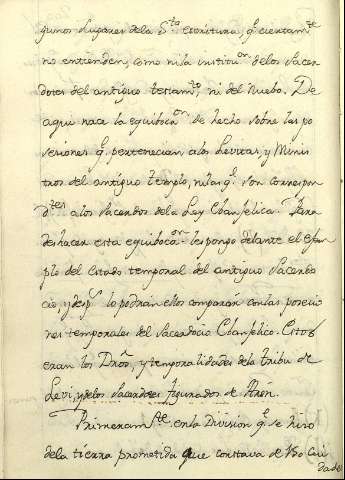 gunos Lugares dela S.ta escritura, q.e ciertam.te
no entienden, como ni la institu.on delos Sacer
dotes del antiguo testam.to, ni del Nuebo. De
aqui nace la equiboca.on de hecho sobre las po
sesiones q.e pertenecian alos Levitas, y Minis
tros del antiguo templo, ni las q.e son correspon
d.tes alos Sacerdos dela Ley Ebanjelica. Para
deshacer esta equiboca.on les pongo delante el exem
plo del Estado temporal del antiguo Sacerdo
cio, y desp.s lo podran ellos comparar con las posesio
nes temporales del Sacerdocio Ebanjelico. Estos
eran los Dros, y temporalidades dela tribu de
Levi, y delos Sacerdotes figurados de Aron.
Primeram.te en la Division q.e se hizo
dela tierra prometida que constava de Ciu
dades